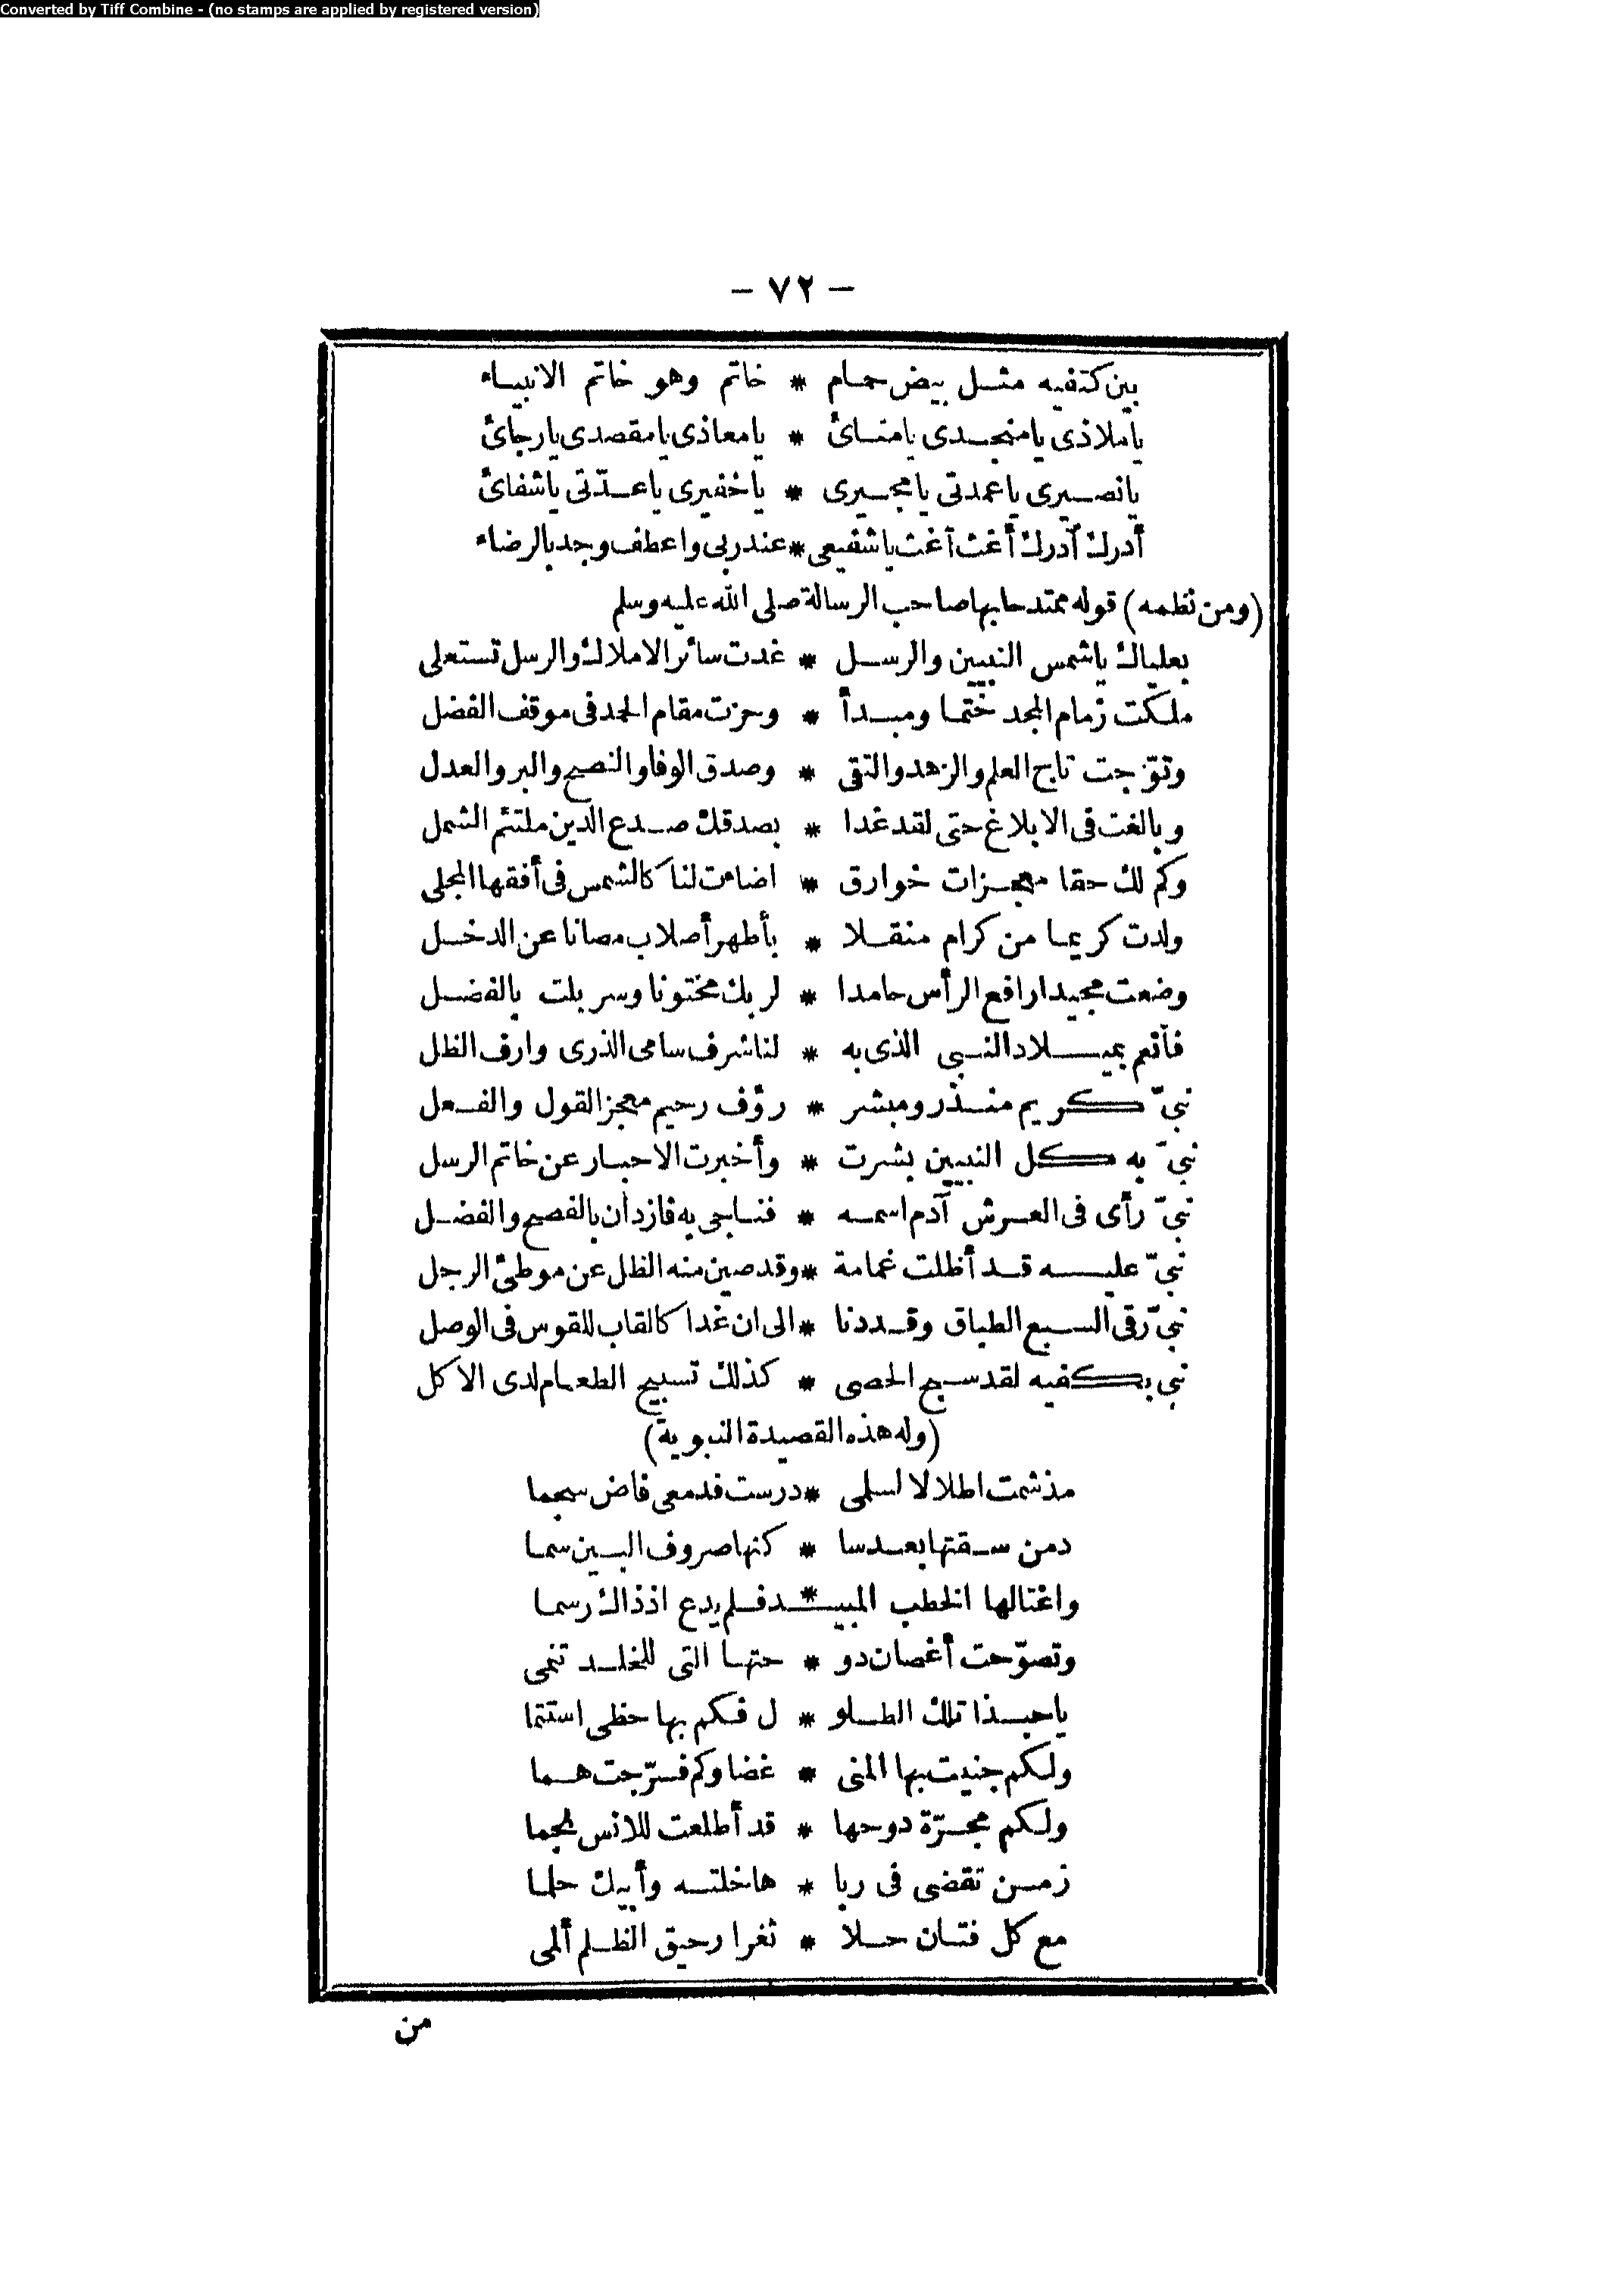 Converted by Tiff Combine - (no stamps are applied by registered version)
— ٧٢ —
بين كتفيه مثل بيض حمام * خاتم وهو خاتم الانبياء
ياملاذى يامنجدى يامنائ * يامعاذى يامقصدى يارجائ
يانصيرى ياعمدتى يامجيرى * ياخفيرى ياعدّتى ياشفائ
أدرك أدرك أغث أغث ياشفيعى * عندربى واعطف وجد بالرضاء
(ومن نظمه) قوله ممتدحا بها صاحب الرسالة صلى الله عليه وسلم
بعلياك ياشمس النبيين والرسل * غدت سائر الاملاك والرسل تستعلى
ملكت زمام المجد ختما ومبدأ * وحزت مقام الحمد فى موقف الفضل
وتوّجت تاج العلم والزهد والتقى * وصدق الوفا والنصح والبر والعدل
وبالغت فى الابلاغ حتى لقد غدا * بصدقك صدع الدين ملتئم الشمل
وكم لك حقا معجزات خوارق * اضاءت لنا كالشمس فى أفقها المجلى
ولدت كريما من كرام منقلا * بأطهر أصلاب مصانا عن الدخل
وضعت مجيدا رافع الرأس حامدا * لربك مختونا وسربلت بالفضل
فأنعم بميلاد النبى الذى به * لنا شرف سامى الذرى وارف الظل
نبىّ كريم منذر ومبشر * رؤف رحيم معجز القول والفعل
نبىّ به كل النبيين بشرت * وأخبرت الاحبار عن خاتم الرسل
نبىّ رأى فى العرش آدم اسمه * فناجى به فازدان بالفصح والفضل
نبىّ عليه قد أظلت غمامة * وقد صين منه الظل عن موطئ الرجل
نبىّ رقى السبع الطباق وقد دنا * الى ان غدا كالقاب للقوس فى الوصل
نبى بكفيه لقد سبح الحصى * كذلك تسبيح الطعام لدى الاكل
(وله هذه القصيدة النبوية)
مذ شمت اطلالا لسلمى * درست فدمعى فاض سجما
دمن سقتها بعد سا * كنها صروف البين سما
واغتالها الخطب المبيـ * ـد فلم يدع اذ ذاك رسما
وتصوّحت أغصان دو * حتها التى للخلد تنمى
ياحبذا تلك الطلو * ل فكم بها حظى استتما
ولكم جنيت بها المنى * غضا وكم فرّجت هما
ولكم مجرّة دوحها * قد أطلعت للانس نجما
زمن تقضى فى ربا * ها خلته وأبيك حلما
مع كل فتان حلا * ثغرا رحيق الظلم ألمى
من